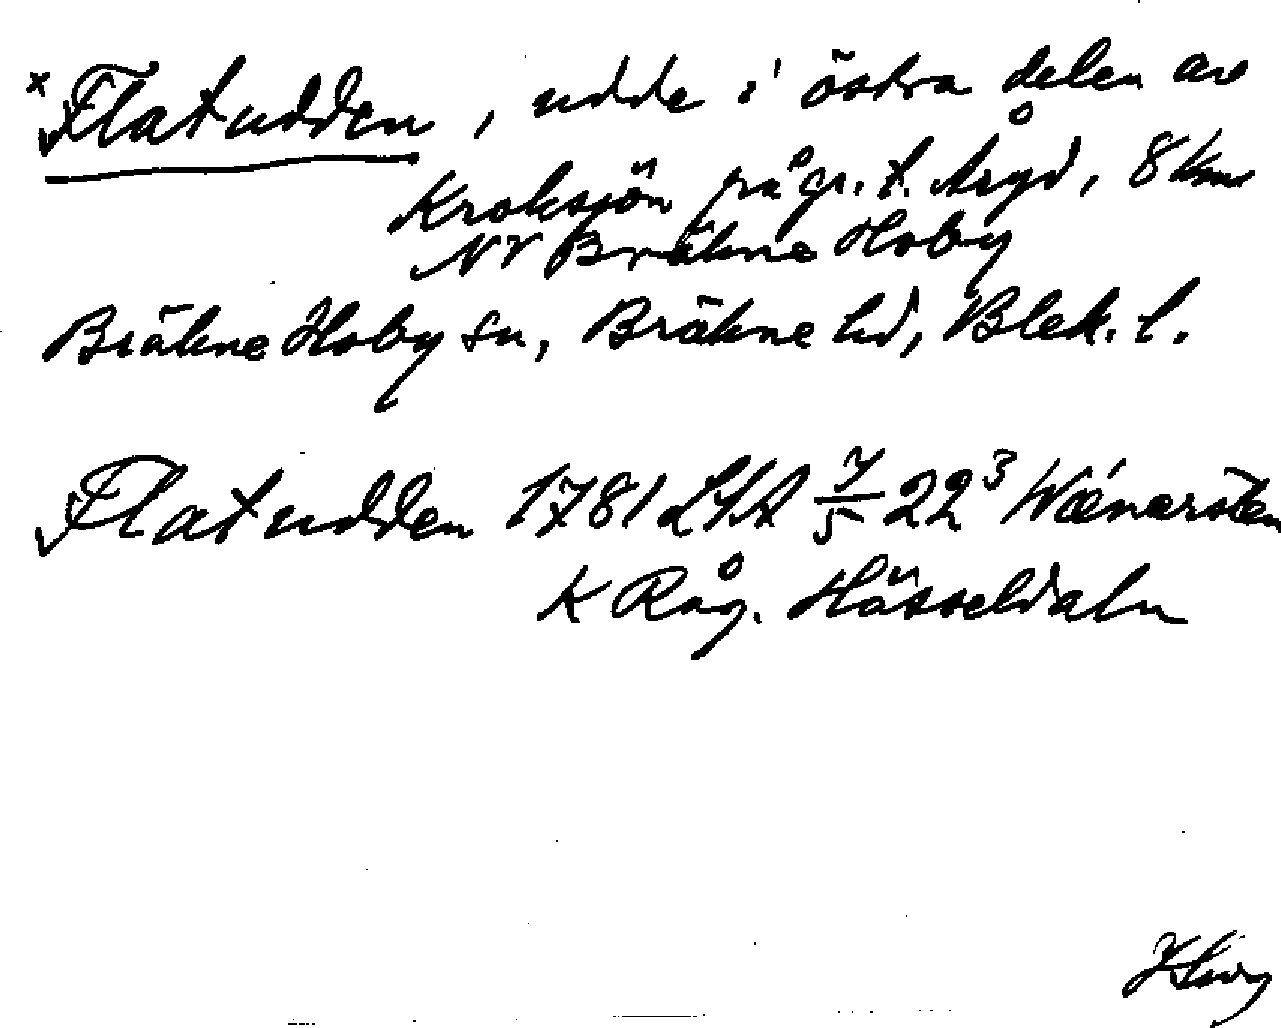 x Flatudden, udde i östra delen av
Kroksjön på gr. t. Åryd, 8 km
NV Bräkne Hoby
Bräkne Hoby sn, Bräkne hd, Blek. l.
Flatudden 1781 LSA 7/5 22³ Wænersten
K Råg. Hässeldaln